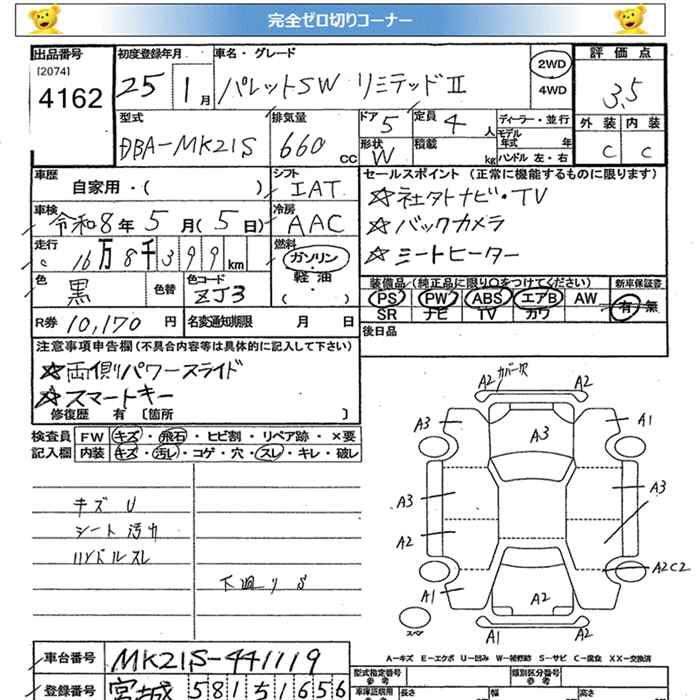 完全ゼロ切りコーナー
出品番号
[2074]
4162
初度登録年月
25 1月
車名・グレード
パレットSW リミテッドII
2WD
4WD
評価点
3.5
外装 内装
C C
型式
DBA-MK21S
排気量
660 CC
ドア 5
形状 W
定員 4 人
積載 kg
ディーラー・並行
モデル年式 年
ハンドル 左・右
車歴
自家用・( )
シフト
IAT
車検
令和8年5月(5日)
冷房
AAC
走行
16万8千399km
燃料
ガソリン・
軽油・
( )
色
黒
色替
色コード
ZJ3
R券 10,170 円
名変通知期限 月 日
セールスポイント (正常に機能するものに限ります)
☆社外ナビ・TV
☆バックカメラ
☆シートヒーター
装備品(純正品に限り○をつけてください)
PS PW ABS エアB AW
SR ナビ TV カワ
新車保証書
有・無
後日品
注意事項申告欄(不具合内容等は具体的に記入して下さい)
☆両側パワースライド
☆スマートキー
修復歴 有 〔箇所 〕
検査員記入欄
FW キズ・飛石・ヒビ割・リペア跡・×要
内装 キズ・汚レ・コゲ・穴・スレ・キレ・破レ
キズ U
シート汚れ
ハンドルスレ
下廻りS
A2 カバー欠 A2
A3 A3 A1
A3 A3
A2
A2C2
A1 A2
スペア
A1 A2
A-キズ E-エクボ U-凹み W-補修跡 S-サビ C-腐食 XX-交換済
車台番号 MK21S-441119
登録番号 宮城 581 い 1656
型式指定番号
参考
類別区分番号
参考
車庫証明用
参考
長さ
幅
高さ